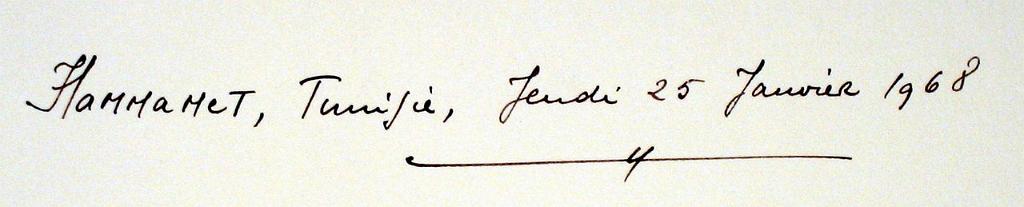 Hammamet, Tunisie, Jeudi 25 Janvier 1968